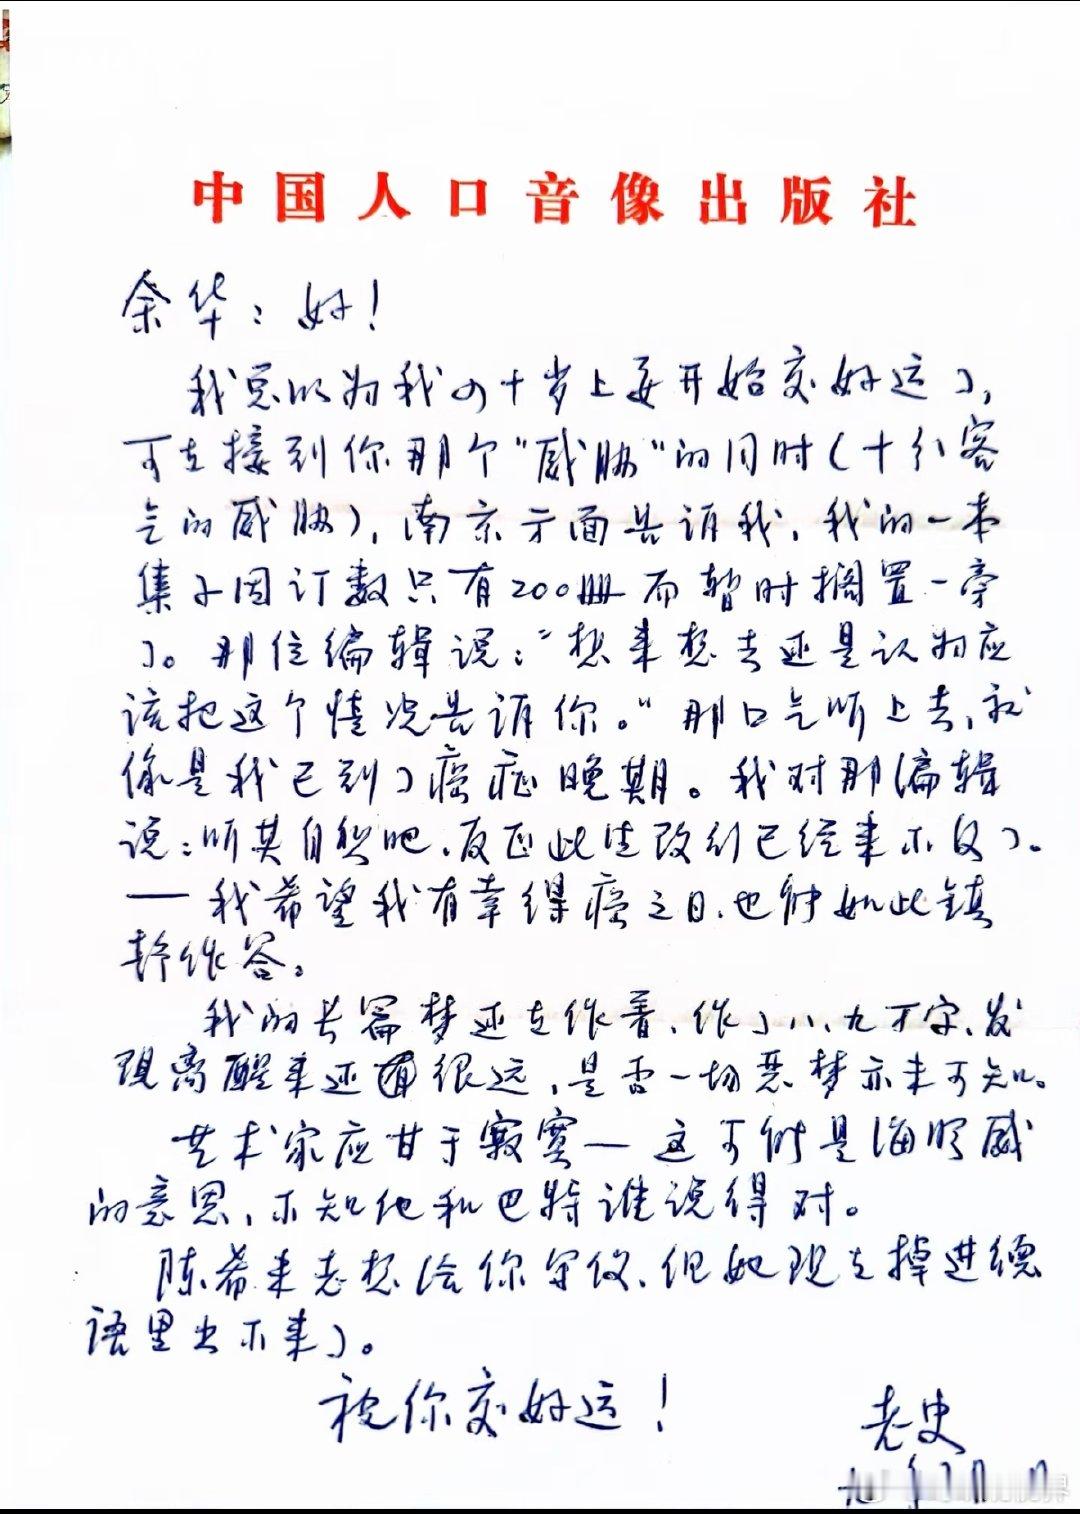 中国人口音像出版社
余华：好！
我总以为我四十岁上要开始交好运了，
可在接到你那个"威胁"的同时（十分客
气的威胁），南京方面告诉我，我的一本
集子因订数只有200册而暂时搁置一旁
了。那位编辑说："想来想去还是认为应
该把这个情况告诉你。"那口气听上去，就
像是我已到了癌症晚期。我对那编辑
说：听其自然吧，反正此生改行已经来不及了。
——我希望我有幸得癌之日，也能如此镇
静作答。
我的长篇梦还在作着，作了八、九万字，发
现离醒来还有很远，是否一场恶梦亦未可知。
艺术家应甘于寂寞——这可能是海明威
的意思，不知他和巴特谁说得对。
陈希米老想给你写信，但她现在掉进德
语里出不来了。
祝你交好运！
老史